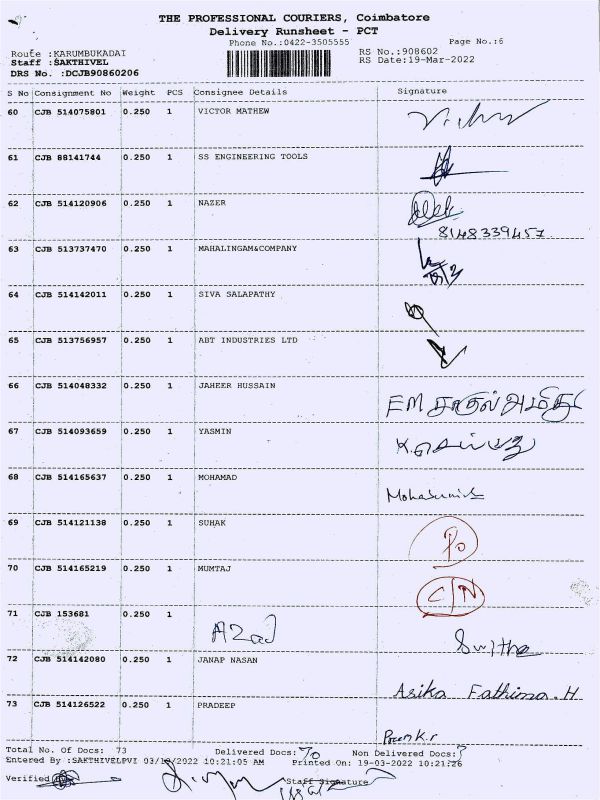 THE PROFESSIONAL COURIERS, Coimbatore
Delivery Runsheet - PCT
Phone No.:0422-3505555
Page No.:6
Route :KARUMBUKADAI
RS No.:908602
Staff :SAKTHIVEL
RS Date:19-Mar-2022
DRS No. :DCJB90860206
S No Consignment No Weight PCS Consignee Details Signature
60 CJB 514075801 0.250 1 VICTOR MATHEW
61 CJB 88141744 0.250 1 SS ENGINEERING TOOLS
62 CJB 514120906 0.250 1 NAZER
8148339457
63 CJB 513737470 0.250 1 MAHALINGAM&COMPANY
64 CJB 514142011 0.250 1 SIVA SALAPATHY
65 CJB 513756957 0.250 1 ABT INDUSTRIES LTD
66 CJB 514048332 0.250 1 JAHEER HUSSAIN
67 CJB 514093659 0.250 1 YASMIN
68 CJB 514165637 0.250 1 MOHAMAD
69 CJB 514121138 0.250 1 SUHAK
70 CJB 514165219 0.250 1 MUMTAJ C/N
71 CJB 153681 0.250 1 Azad
72 CJB 514142080 0.250 1 JANAP NASAN
Asika Fathima.H
73 CJB 514126522 0.250 1 PRADEEP
Total No. Of Docs: 73 Delivered Docs: 70 Non Delivered Docs:
Entered By :SAKTHIVELPVI 03/19/2022 10:21:05 AM Printed On: 19-03-2022 10:21:26
Verified Staff Signature